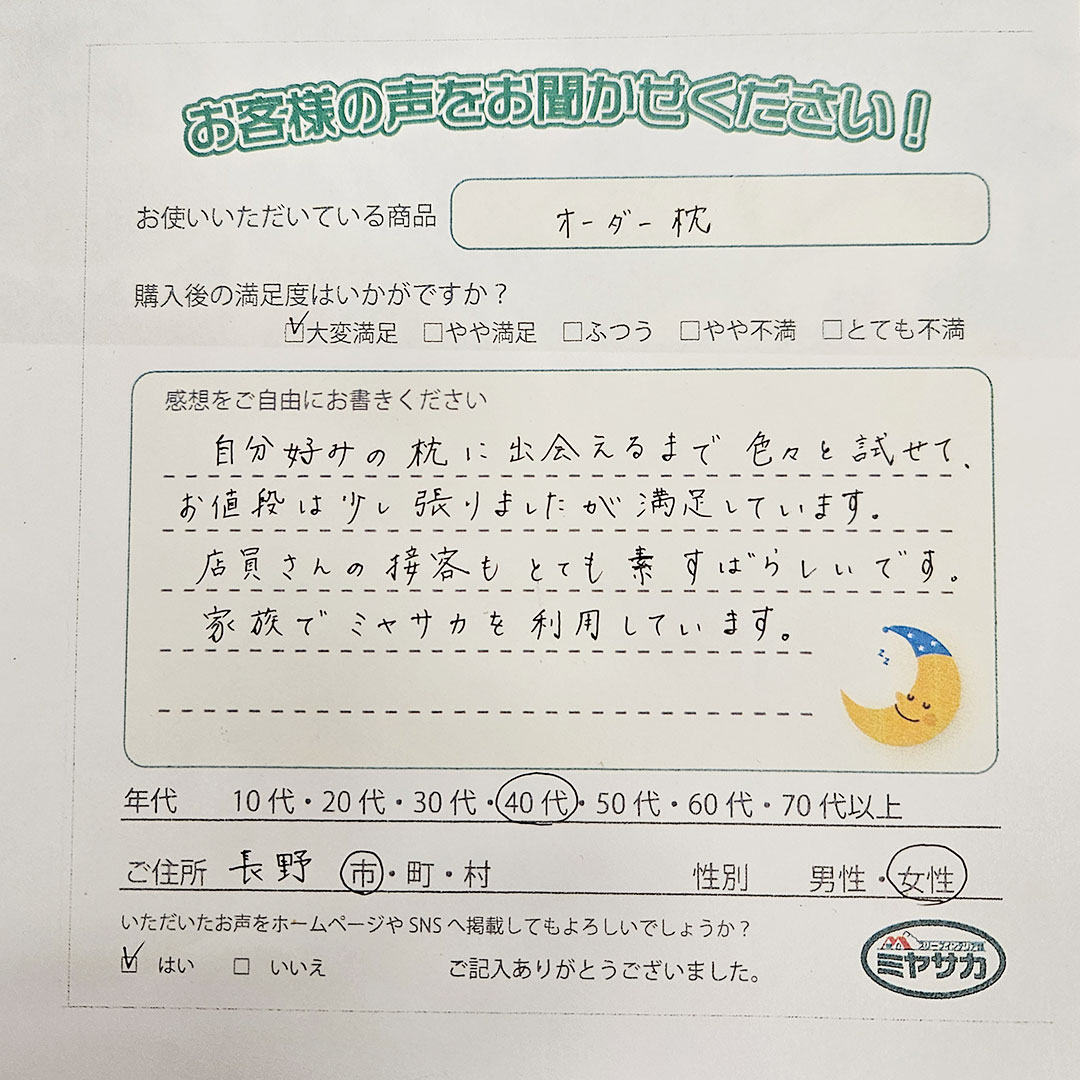 お客様の声をお聞かせください！
お使いいただいている商品 オーダー枕
購入後の満足度はいかがですか？
☑大変満足 □やや満足 □ふつう □やや不満 □とても不満
感想をご自由にお書きください
自分好みの枕に出会えるまで色々と試せて、
お値段は少し張りましたが満足しています。
店員さんの接客もとても素すばらしいです。
家族でミヤサカを利用しています。
年代 10代・20代・30代・40代・50代・60代・70代以上
ご住所 長野 市・町・村 性別 男性・女性
いただいたお声をホームページやSNSへ掲載してもよろしいでしょうか？
☑ はい □ いいえ ご記入ありがとうございました。
ミヤサカ